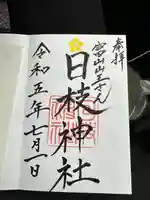 奉拝
富山山王さん
日枝神社
令和五年七月一日